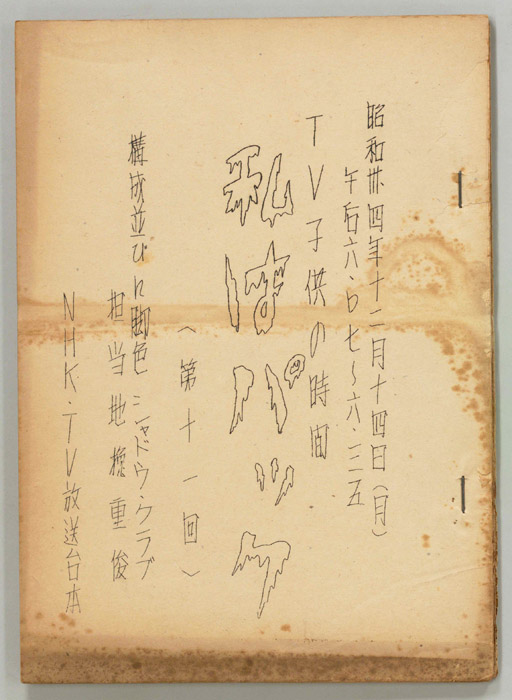 昭和卅四年十二月十四日(月)
午后六・〇七〜六・三五
TV子供の時間
私はパック
(第十一回)
構成並びに脚色 シャドウ・クラブ
担当 地 重俊
NHK・TV放送台本